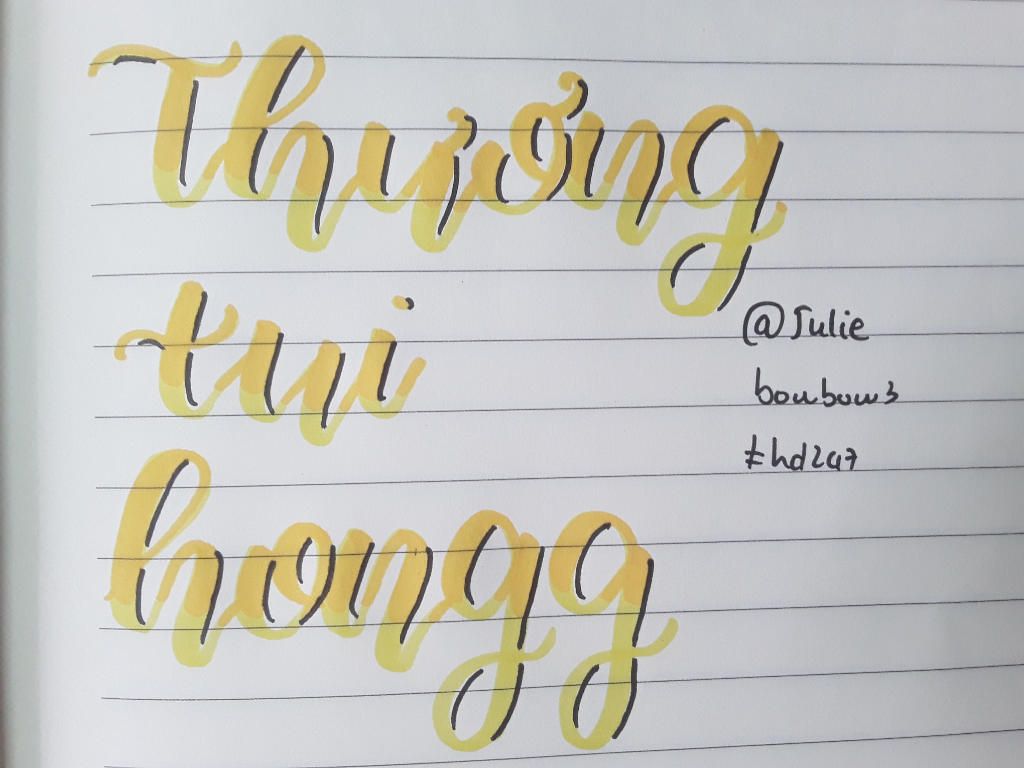 Thương
tui
hongg
@Julie
bowbow3
#hd247